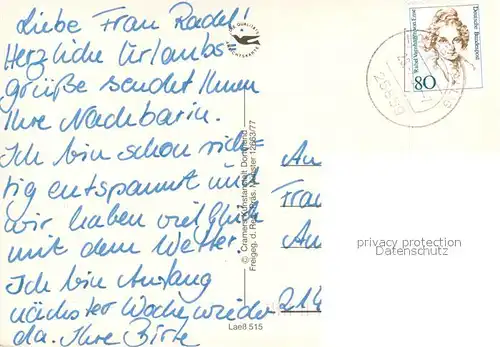 Liebe Frau Radel!
Herzliche Urlaubs-
grüße sendet Ihnen
Ihre Nachbarin.
Ich bin schon rich-
tig entspannt und
wir haben viel Glück
mit dem Wetter.
Ich bin Anfang
nächster Woche wieder
da. Ihre Birte
© Cramers Kunstanstalt Dortmund
Freigeg. d. Reg. Präs. Münster 12663/77
Laeß 515
Deutsche Bundespost
Rahel Varnhagen von Ense
80
An
Frau
An
214
privacy protection
Datenschutz